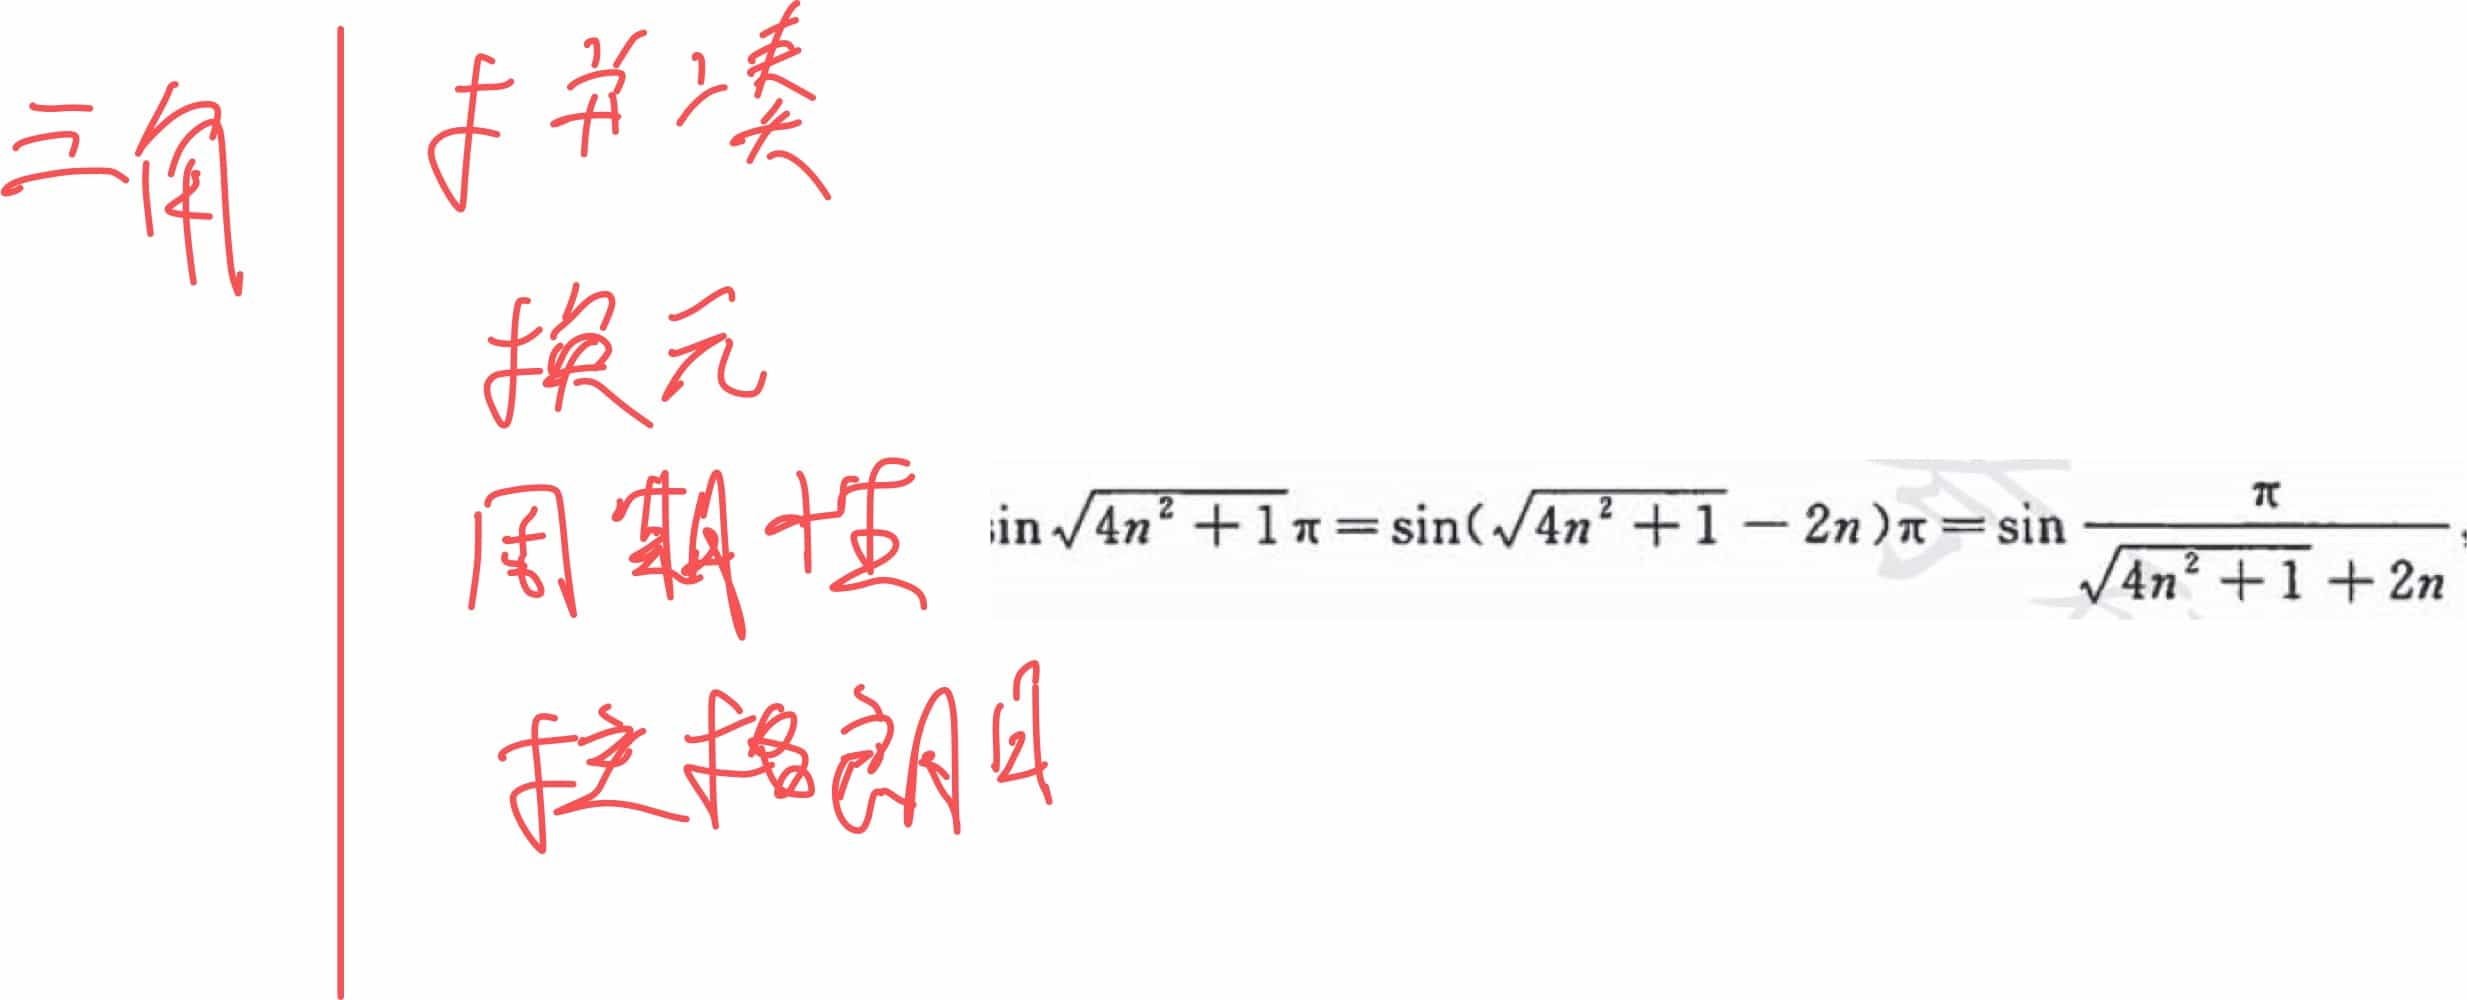 三角
拼凑
换元
周期性
in√(4n²+1)π=sin(√(4n²+1)−2n)π=sin π/(√(4n²+1)+2n),
拉格朗日